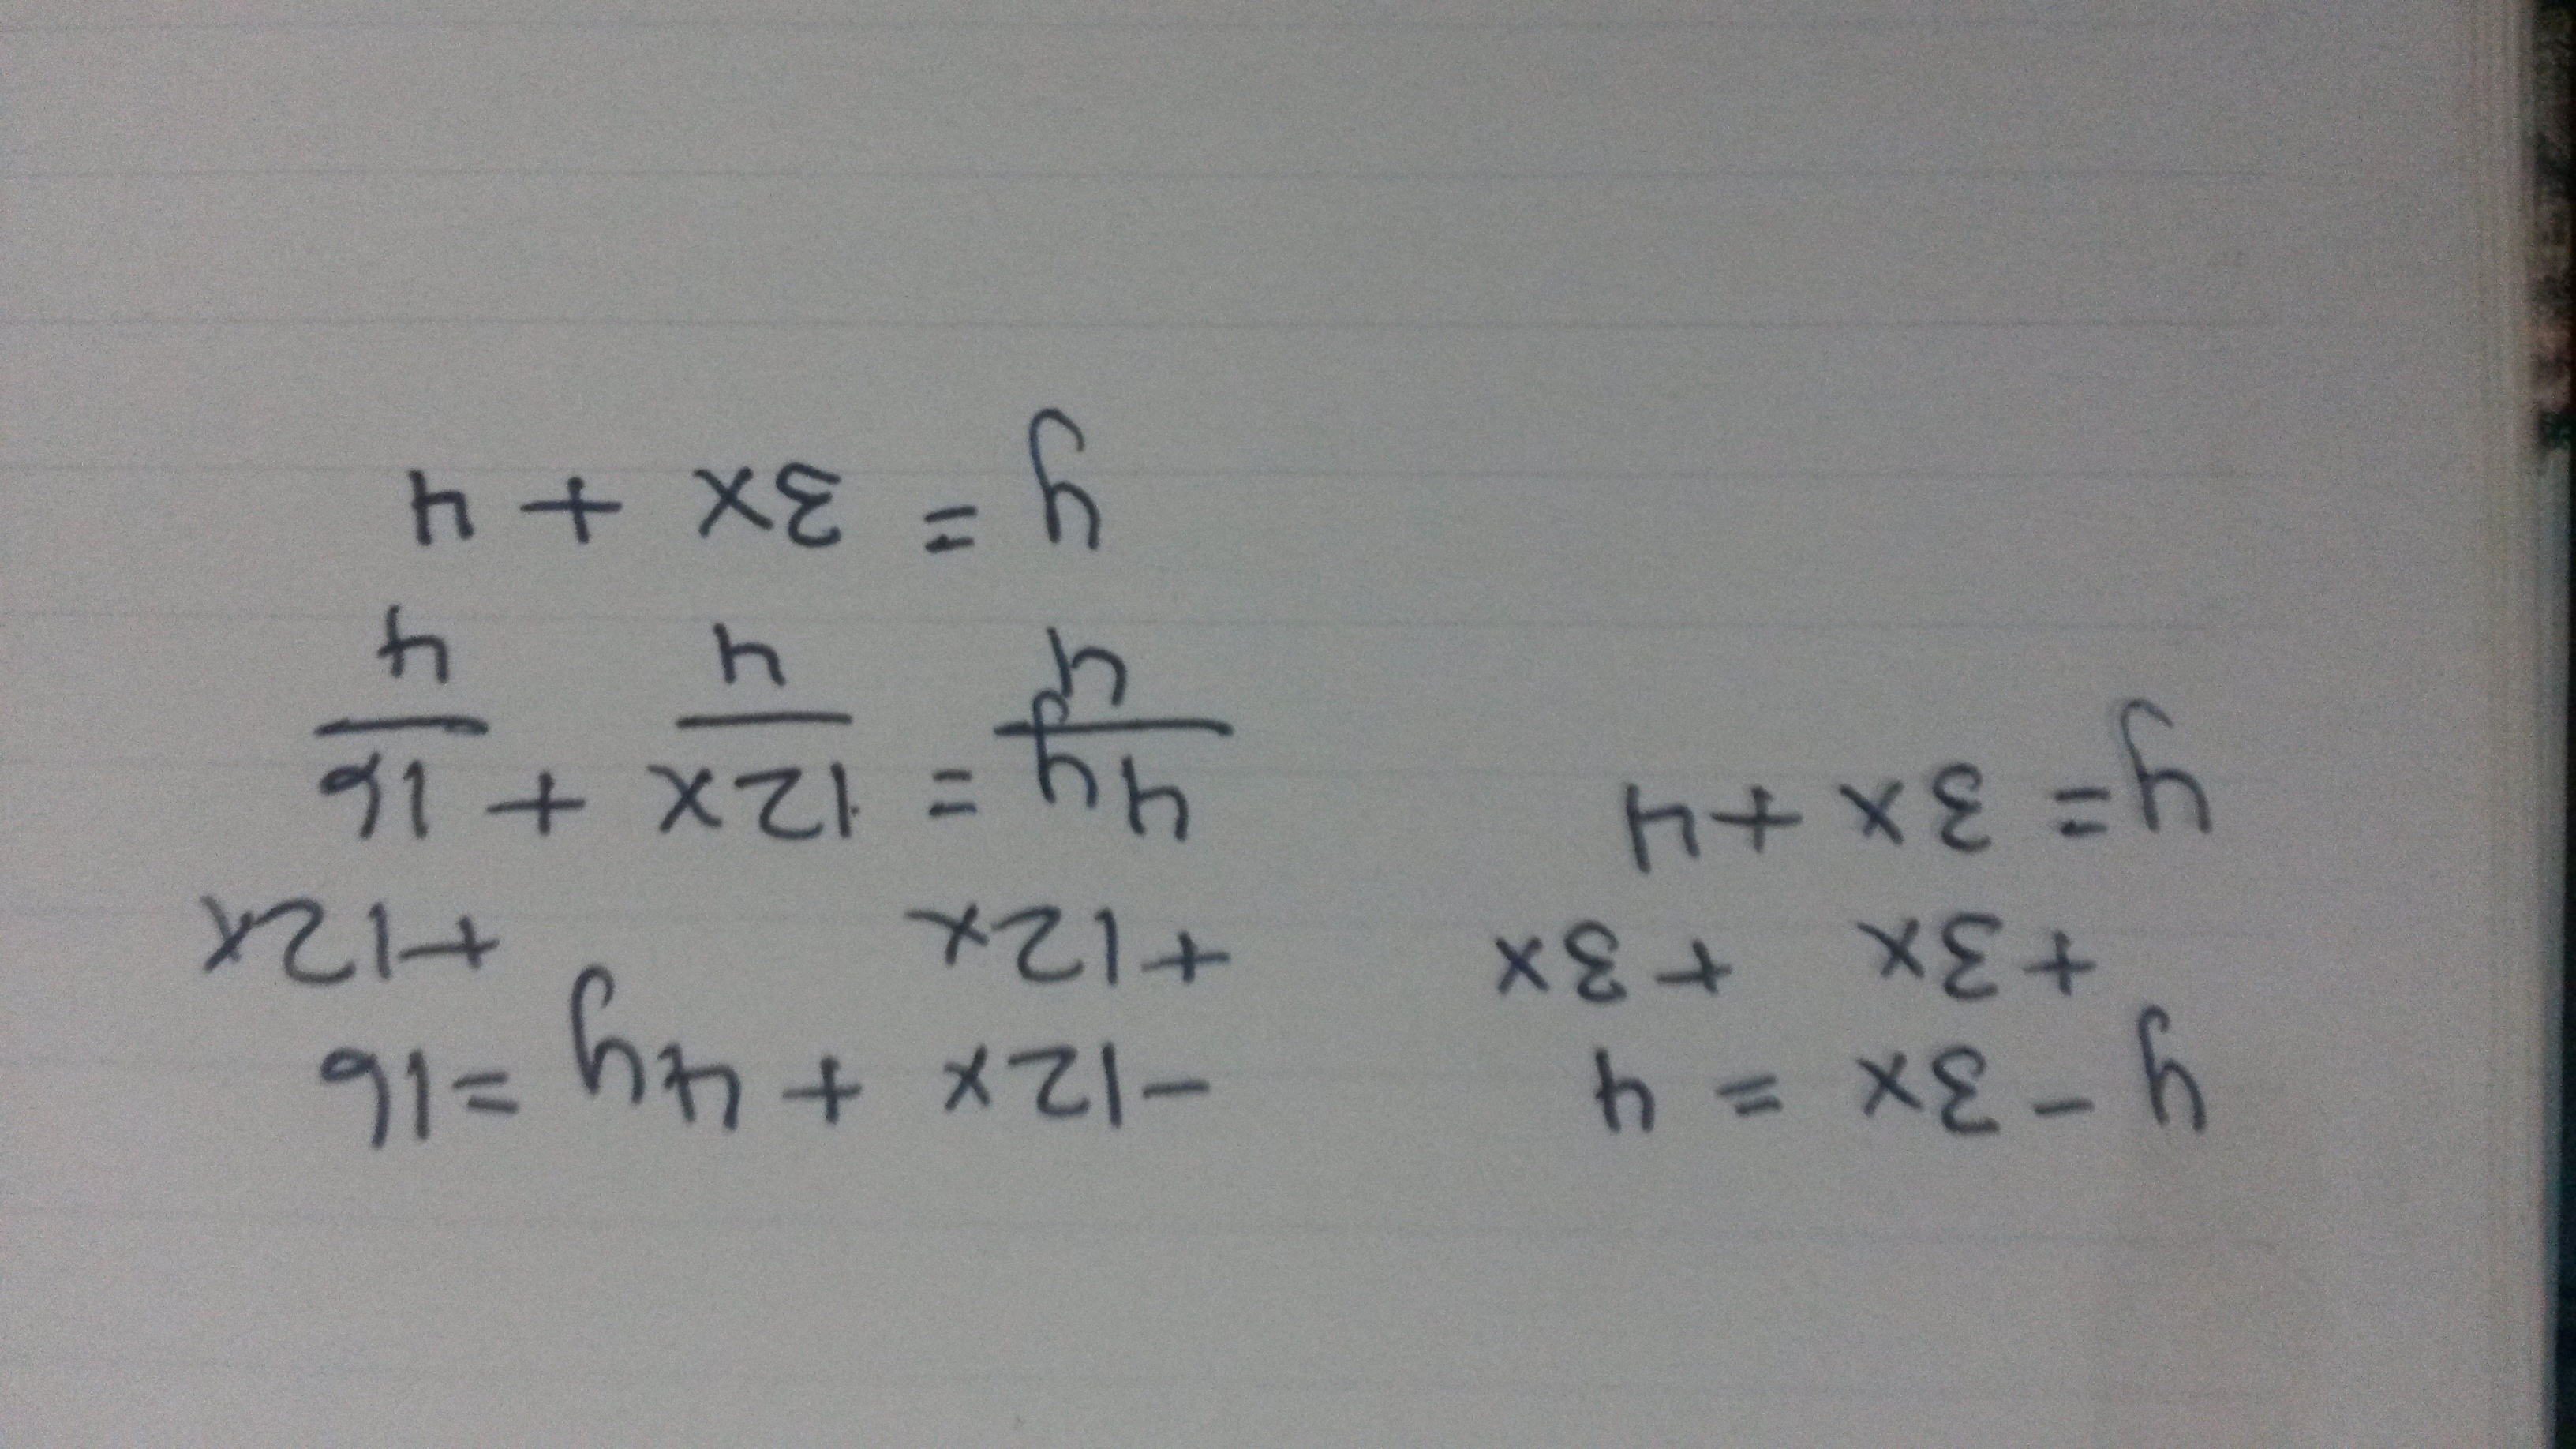 y - 3x = 4
+3x +3x
y = 3x + 4
-12x + 4y = 16
+12x +12x
4y = 12x + 16
4 4 4
y = 3x + 4